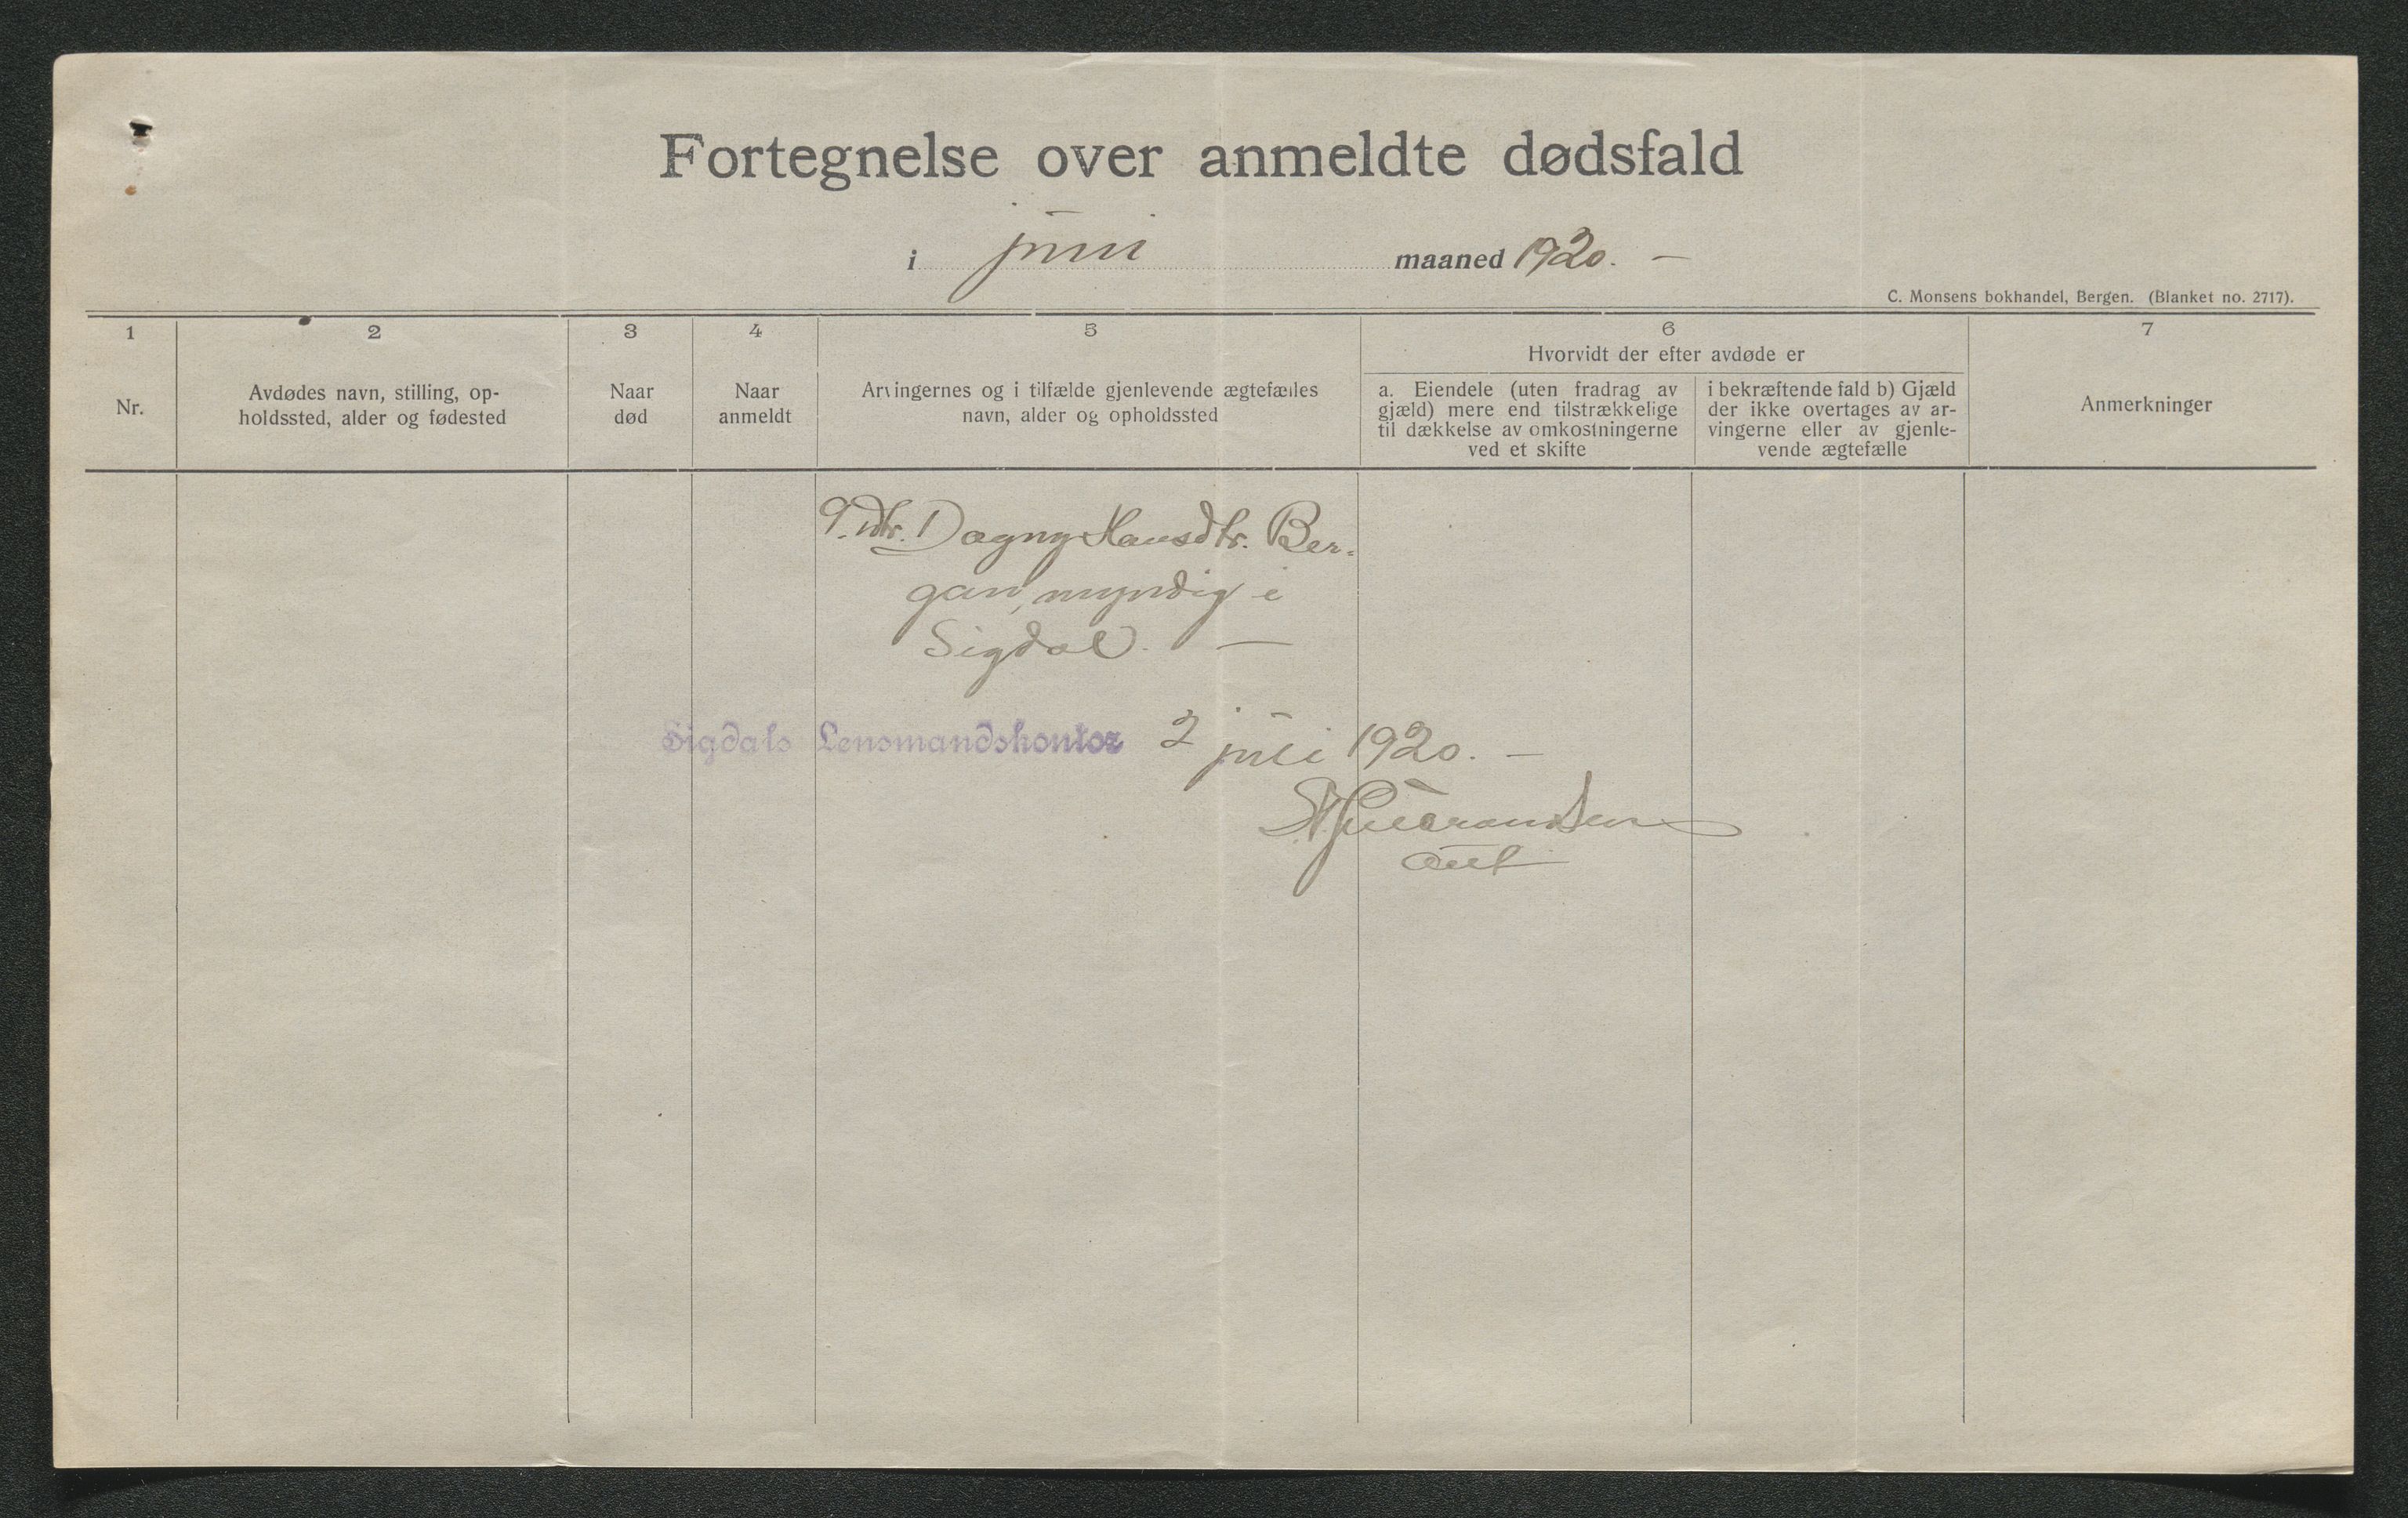 Fortegnelse over anmeldte dødsfald
i juni maaned 1920. —
C. Monsens bokhandel, Bergen. (Blanket no. 2717).
1 2 3 4 5 6 7
Hvorvidt der efter avdøde er
Nr.
Avdødes navn, stilling, op-
holdssted, alder og fødested
Naar
død
Naar
anmeldt
Arvingernes og i tilfælde gjenlevende ægtefælles
navn, alder og opholdssted
a. Eiendele (uten fradrag av
gjæld) mere end tilstrækkelige
til dækkelse av omkostningerne
ved et skifte
i bekræftende fald b) Gjæld
der ikke overtages av ar-
vingerne eller av gjenle-
vende ægtefælle
Anmerkninger
9. dtr. Dagny Hansdtr. Ber-
gan, myndig i
Sigdal. —
Sigdals Lensmandskontor 2 juli 1920. —